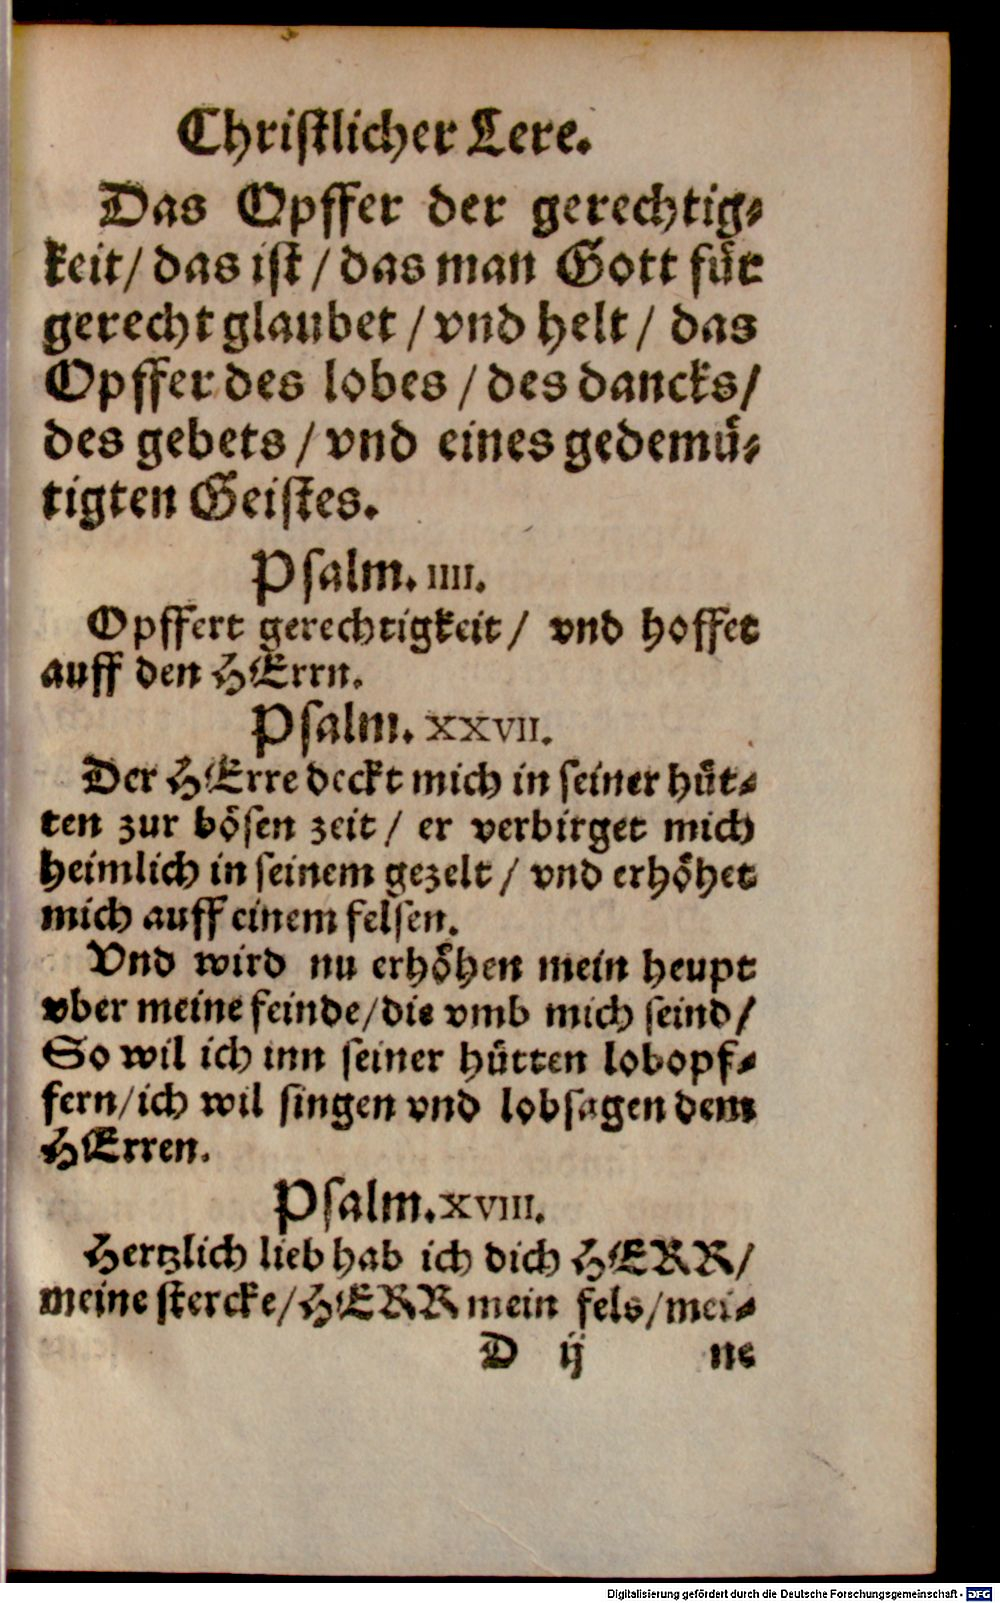 Christlicher Lere.
Das Opffer der gerechtig⸗
keit/ das ist / das man Gott für
gerecht glaubet / vnd helt / das
Opffer des lobes / des dancks/
des gebets / vnd eines gedemü⸗
tigten Geistes.
Psalm. IIII.
Opffert gerechtigkeit / vnd hoffet
auff den HErrn.
Psalm. XXVII.
Der HErre deckt mich in seiner hüt⸗
ten zur bösen zeit / er verbirget mich
heimlich in seinem gezelt / vnd erhöhet
mich auff einem felsen.
Vnd wird nu erhöhen mein heupt
vber meine feinde/die vmb mich seind/
So wil ich inn seiner hütten lobopf⸗
fern/ich wil singen vnd lobsagen dem
HErren.
Psalm.XVIII.
Hertzlich lieb hab ich dich HERR/
meine stercke/HERR mein fels/mei⸗
D ij ne
Digitalisierung gefördert durch die Deutsche Forschungsgemeinschaft - DFG